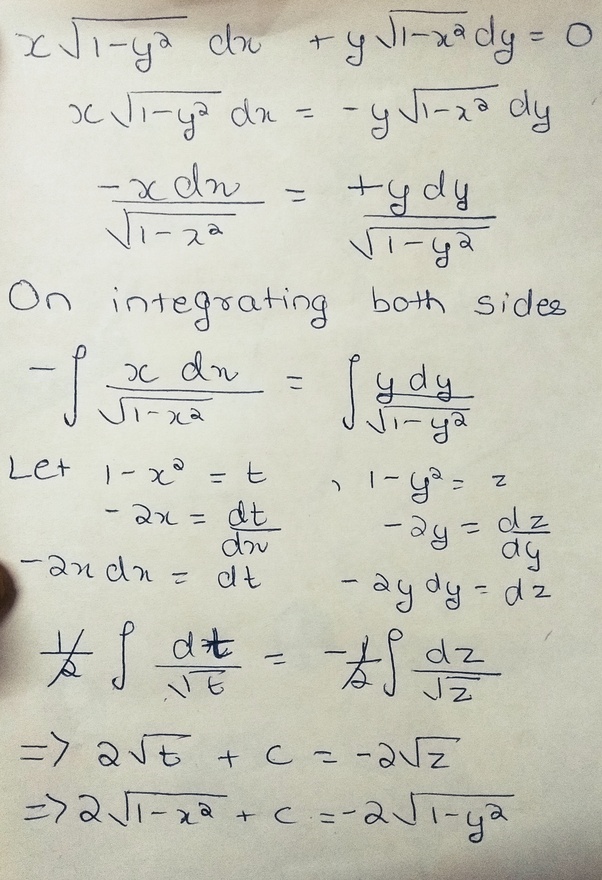 x√(1-y²) dx + y√(1-x²) dy = 0
x√(1-y²) dx = -y√(1-x²) dy
-x dx/√(1-x²) = +y dy/√(1-y²)
On integrating both sides
-∫ x dx/√(1-x²) = ∫ y dy/√(1-y²)
Let 1-x² = t , 1-y² = z
-2x = dt/dx -2y = dz/dy
-2x dx = dt -2y dy = dz
1/2 ∫ dt/√t = -1/2 ∫ dz/√z
=> 2√t + c = -2√z
=> 2√(1-x²) + c = -2√(1-y²)